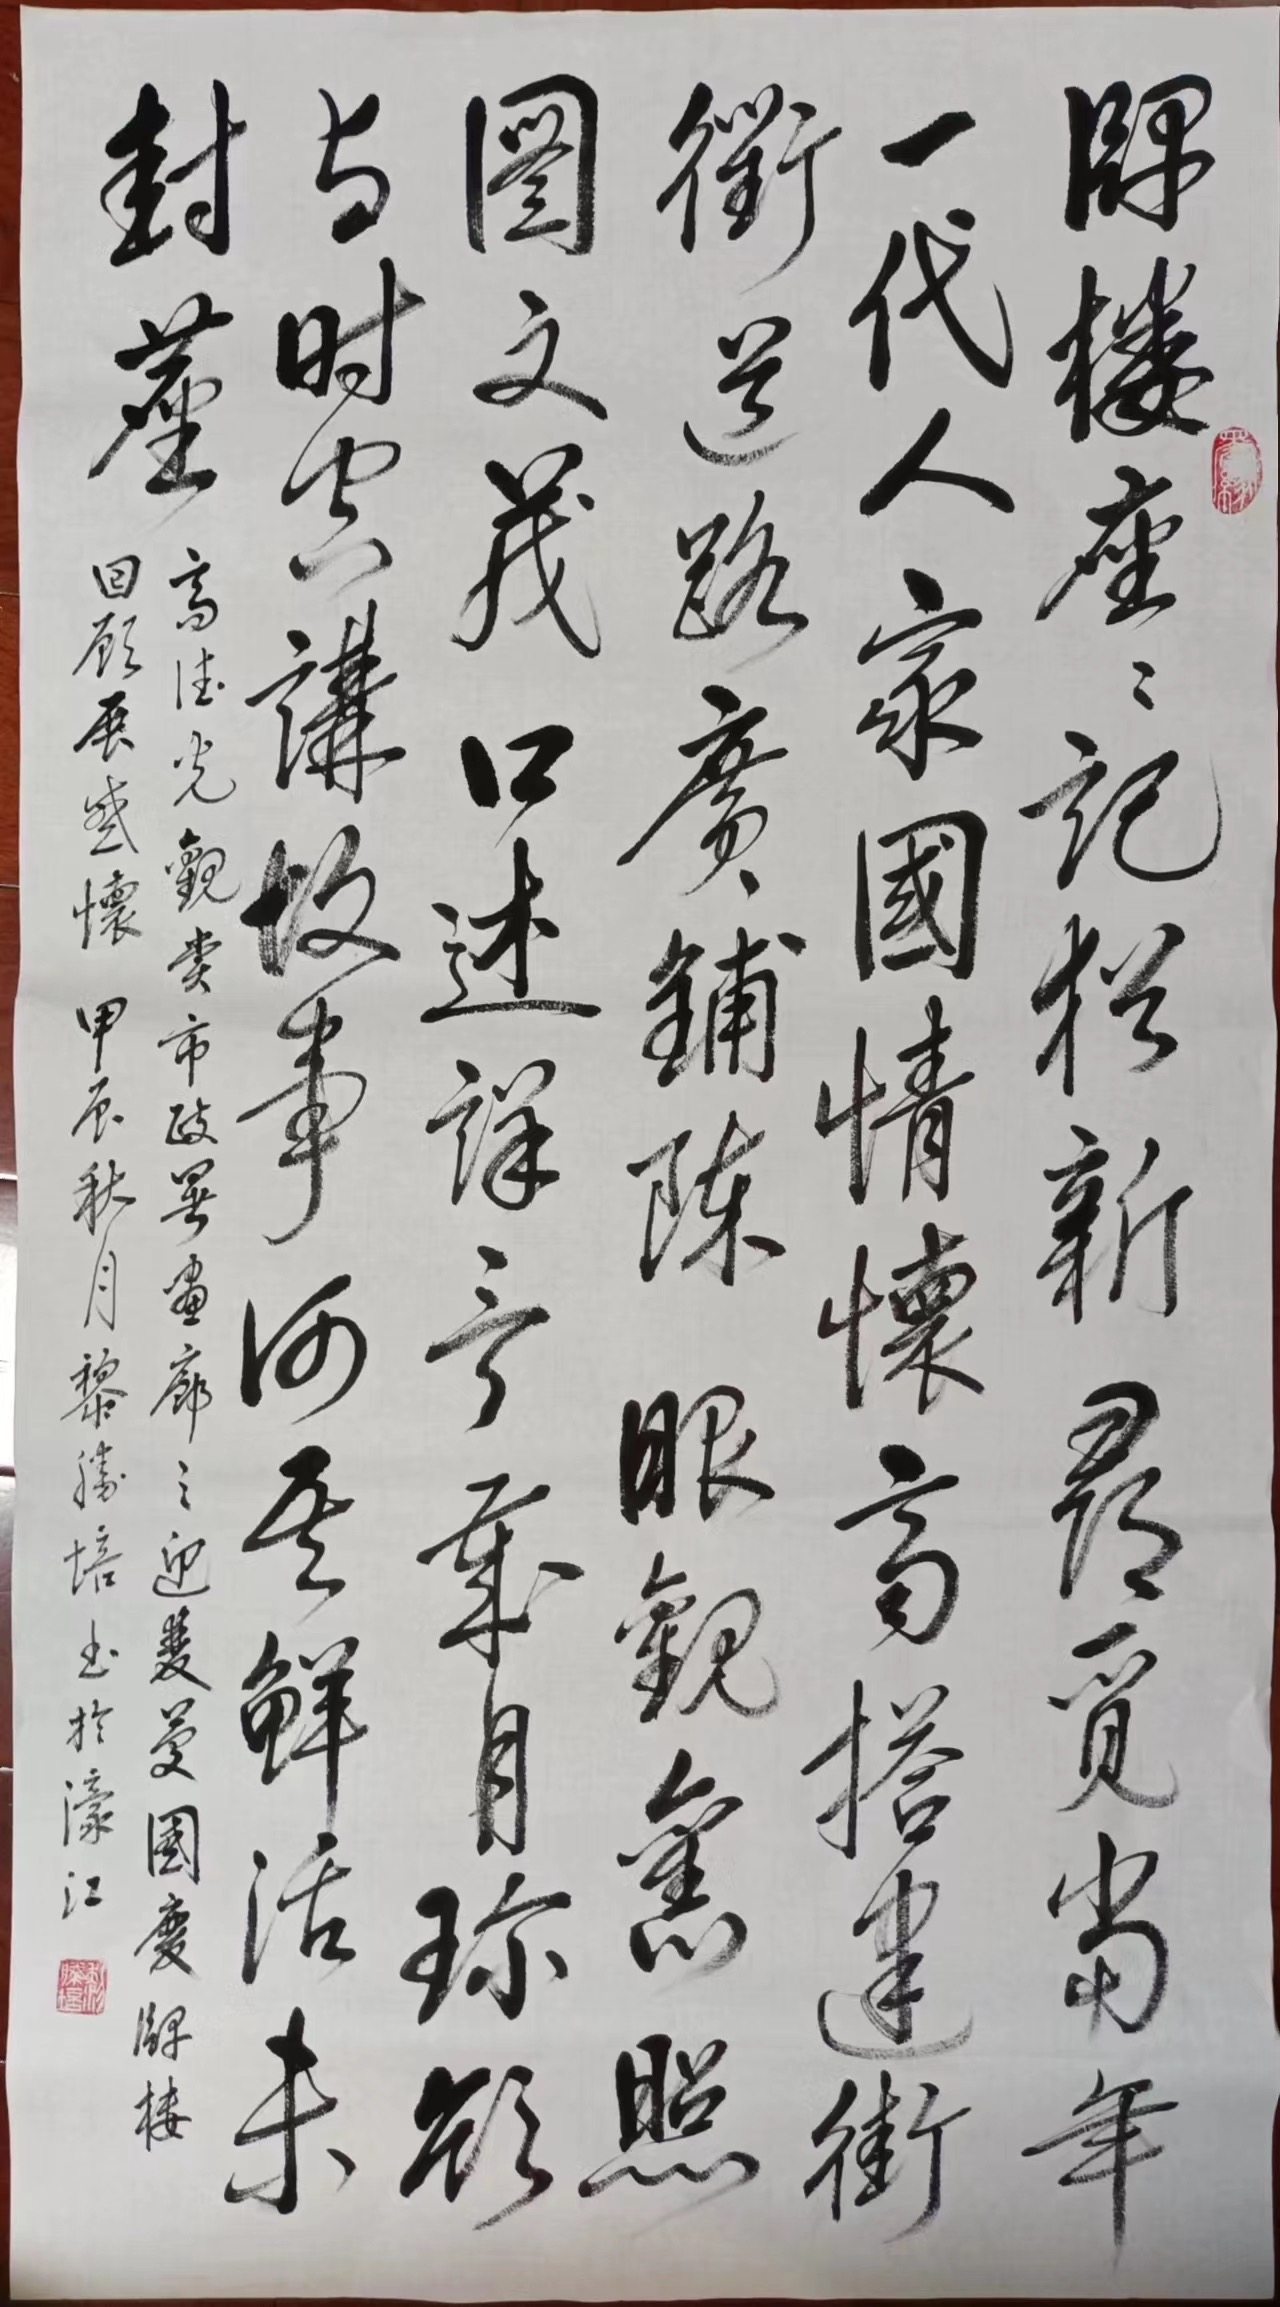 牌楼座〻記猶新尋覓當年
一代人家國情懷高搭建街
衢道路廣鋪陳眼觀舊照
圖文茂口述詳言歲月珍欲
与时空講故事何其鮮活未
封塵
高德光觀賞市政署畫廊之迎雙國慶牌楼
回顧展感懷 甲辰秋月黎勝培书於濠江